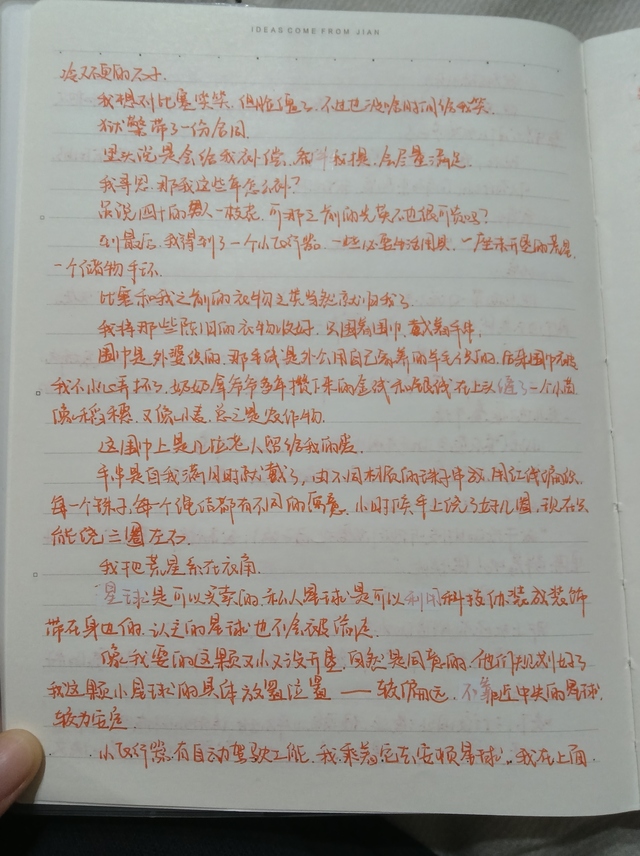 IDEAS COME FROM JIAN
冷又硬的石头.
我想对比塞笑笑，但脸僵了，不过也没啥时间给我笑.
狱警带了一份合同
里头说是会给我补偿，我提，会尽量满足.
我寻思，那我这些年怎么补?
虽说四十的男人一枝花，可那之前的先英不也很可贵吗?
到最后，我得到了一个小飞行器，一些必要生活用具，一座未开垦的荒星，
一个储物手环.
比塞和我之前的衣物之类当然就归我了
我将那些陈旧的衣物收好，只围着围巾，戴着手串.
围巾是外婆织的，那羊绒是外公用自己饲养的羊毛做的，后来围巾被
我不小心弄坏了，奶奶拿爷爷多年攒下来的金线和银线在上头缝了一个小苗
像稻穗，又像小麦，总之是农作物.
这围巾上是几位老人留给我的爱.
手串是自我满月时就戴了，由不同材质的珠子串成，用红线编织，
每一个珠子，每一个绳结都有不同的寓意，小时候手上绕了好几圈，现在只
能绕三圈左右.
我把荒星系在衣角.
星球是可以买卖的，私人星球是可以利用科技伪装成装饰
带在身边的，认主的星球也不会被偷走.
像我要的这颗又小又没开垦，自然是同意的，他们规划好了
我这颗小星球的具体放置位置——较偏远，不靠近中央的星球，
较为安定
小飞行器有自动驾驶功能，我乘着它去要顿星球，我在上面